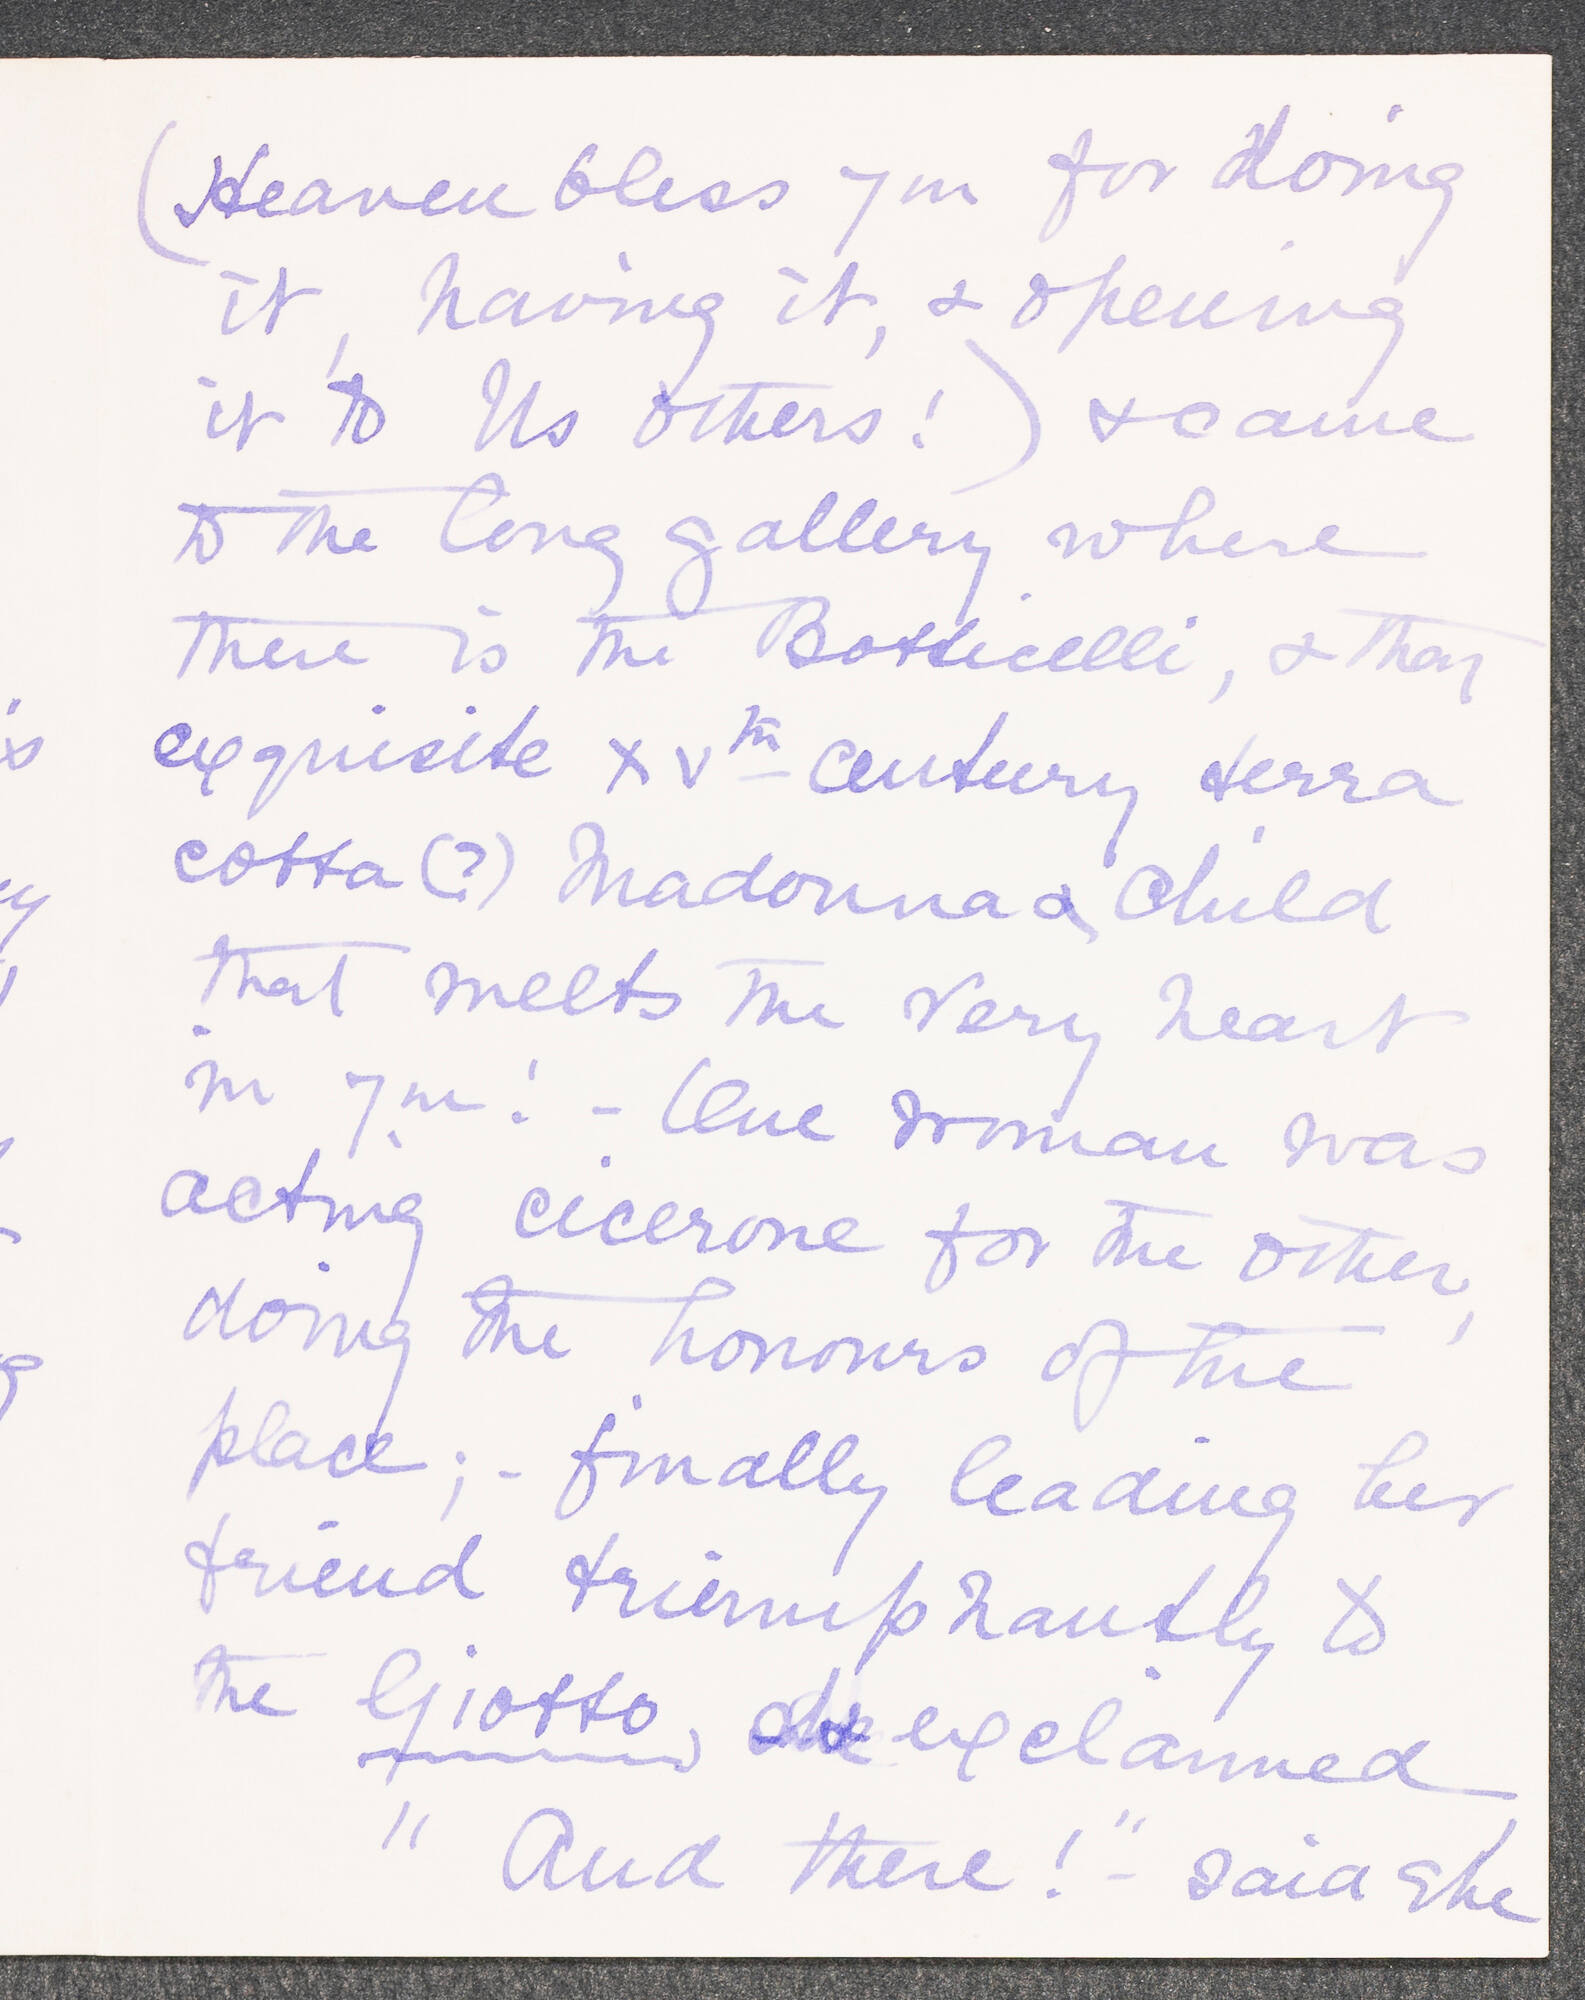 (Heaven bless you for doing
it, having it, & opening
it to Us others!) & came
to the long gallery where
there is the Botticelli, & that
exquisite XVth century terra
cotta (?) Madonna & Child
that melts the very heart
in you! - One woman was
acting cicerone for the other,
doing the honours of the
place; - finally leading her
friend triumphantly to
the Giotto, she exclaimed
"And there!" - said she